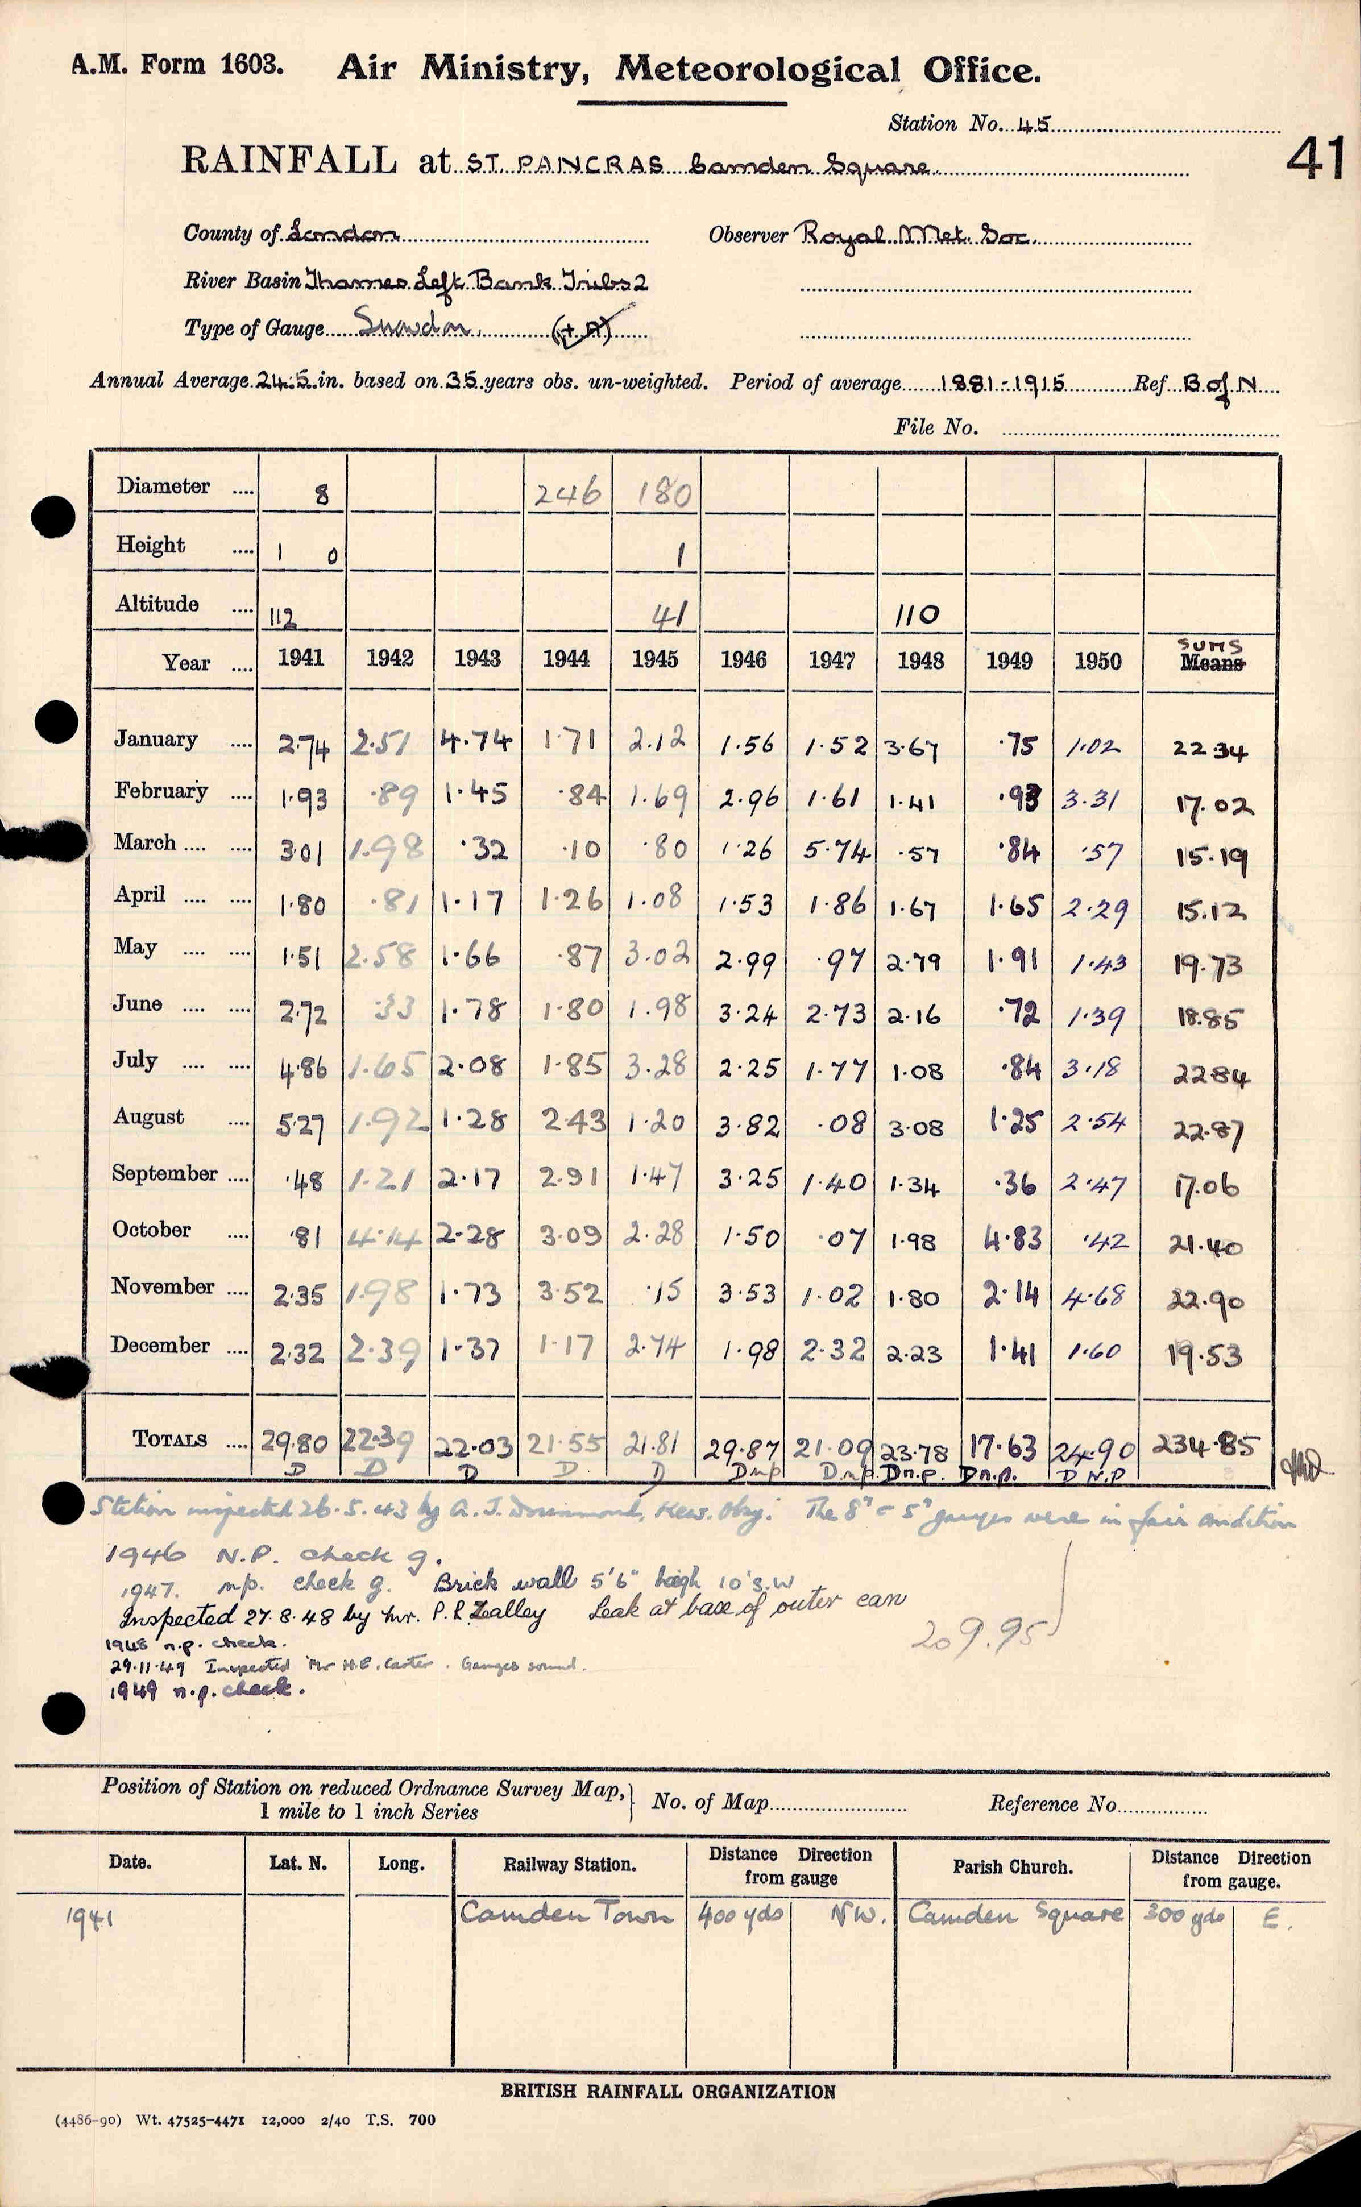 A.M. Form 1603. Air Ministry, Meteorological Office.
Station No. 45
41
RAINFALL at ST. PANCRAS Camden Square.
County of London Observer Royal Met. Soc.
River Basin Thames Left Bank Tribs 2
Type of Gauge Snowdon. (+A)
Annual Average 24.5 in. based on 35 years obs. un-weighted. Period of average 1881-1915 Ref B of N
File No.
Diameter .... 8 246 180
Height .... 1 0 1
Altitude .... 112 41 110
Year .... 1941 1942 1943 1944 1945 1946 1947 1948 1949 1950 SUMS Means
January .... 2.74 2.51 4.74 1.71 2.12 1.56 1.52 3.67 .75 1.02 22.34
February .... 1.93 .89 1.45 .84 1.69 2.96 1.61 1.41 .93 3.31 17.02
March .... .... 3.01 1.98 .32 .10 .80 1.26 5.74 .57 .84 .57 15.19
April .... .... 1.80 .81 1.17 1.26 1.08 1.53 1.86 1.67 1.65 2.29 15.12
May .... .... 1.51 2.58 1.66 .87 3.02 2.99 .97 2.79 1.91 1.43 19.73
June .... .... 2.72 .33 1.78 1.80 1.98 3.24 2.73 2.16 .72 1.39 18.85
July .... .... 4.86 1.65 2.08 1.85 3.28 2.25 1.77 1.08 .84 3.18 22.84
August .... 5.27 1.92 1.28 2.43 1.20 3.82 .08 3.08 1.25 2.54 22.87
September .... .48 1.21 2.17 2.91 1.47 3.25 1.40 1.34 .36 2.47 17.06
October .... .81 4.14 2.28 3.09 2.28 1.50 .07 1.98 4.83 .42 21.40
November .... 2.35 1.98 1.73 3.52 .15 3.53 1.02 1.80 2.14 4.68 22.90
December .... 2.32 2.39 1.37 1.17 2.74 1.98 2.32 2.23 1.41 1.60 19.53
TOTALS .... 29.80 22.39 22.03 21.55 21.81 29.87 21.09 23.78 17.63 24.90 234.85
D D D D D D n.p D n.p. D n.p. D n.p. D N.P
Station inspected 26.5.43 by A.J. Drummond, Kew. Oby: The 8" & 5" gauges were in fair condition
1946 N.P. check g.
1947. n.p. check g. Brick wall 5'6" high 10' S.W
Inspected 27.8.48 by Mr. P.R. Zealley Leak at base of outer can
209.95
1948 n.p. check.
29.11.49 Inspected Mr H.E. Carter. Gauges sound.
1949 n.p. check.
Position of Station on reduced Ordnance Survey Map, 1 mile to 1 inch Series No. of Map Reference No.
Date. Lat. N. Long. Railway Station. Distance Direction from gauge Parish Church. Distance Direction from gauge.
1941 Camden Town 400 yds NW. Camden Square 300 yds E.
BRITISH RAINFALL ORGANIZATION
(4486-90) Wt. 47525-4471 12,000 2/40 T.S. 700